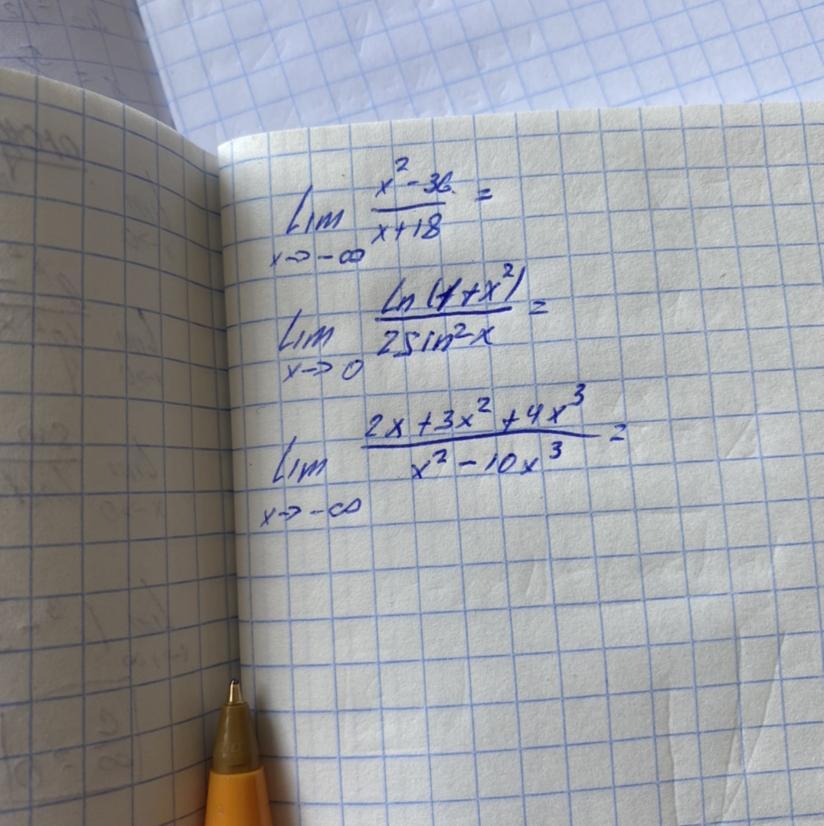 lim x→-∞ (x² - 36)/(x + 18) =
lim x→0 ln(1 + x²)/(2 sin² x) =
lim x→-∞ (2x + 3x² + 4x³)/(x² - 10x³) =